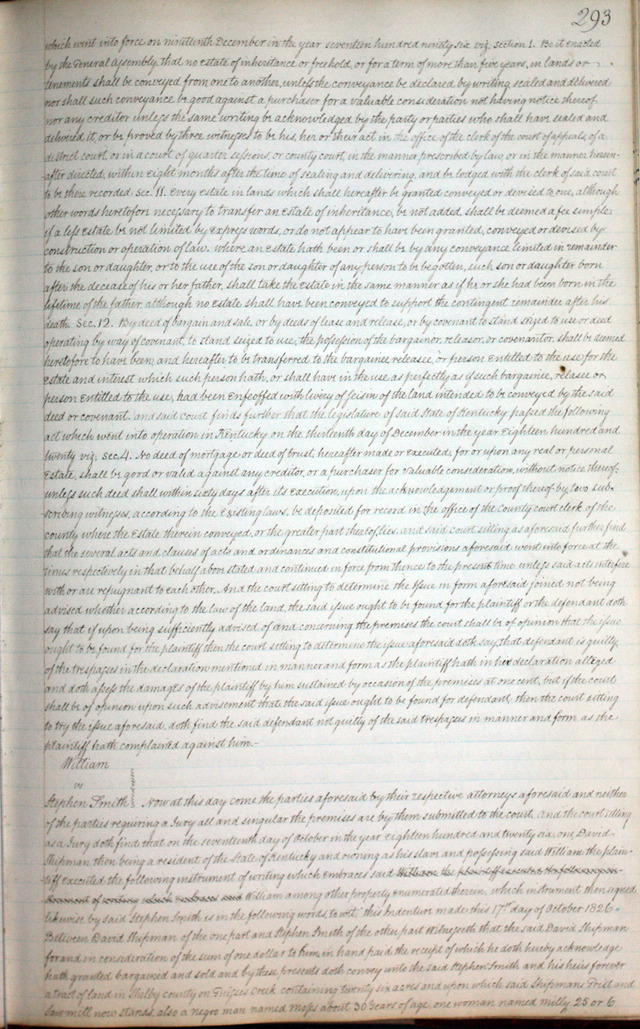 293
which went into force on nineteenth December in the year seventeen hundred ninety six viz. Section 1. Be it enacted
by the General Assembly, that no estate of inheritance or freehold, or for a term of more than five years, in lands or
tenements shall be conveyed from one to another, unless the conveyance be declared by writing sealed and delivered
nor shall such conveyance be good against a purchaser for a valuable consideration not having notice thereof
nor any creditor unless the same writing be acknowledged by the party or parties who shall have sealed and
delivered it, or be proved by three witnesses to be his, her or their act in the office of the clerk of the court of appeals, of a
district court, or in a court of quarter sessions, or county court, in the manner prescribed by law, or in the manner herein-
after directed, within eight months after the time of sealing and delivering, and be lodged with the clerk of said court
to be there recorded. Sec. 11. Every estate in lands which shall hereafter be granted conveyed or devised to one, although
other words heretofore necessary to transfer an estate of inheritance, be not added, shall be deemed a fee simple
if a less estate be not limited by express words, or do not appear to have been granted, conveyed or devised by
construction or operation of law. where an estate hath been or shall be by any conveyance limited in remainder
to the son or daughter, or to the use of the son or daughter of any person to be begotten, such son or daughter born
after the decease of his or her father, shall take the estate in the same manner as if he or she had been born in the
lifetime of the father, although no estate shall have been conveyed to support the contingent remainder after his
death. Sec. 12. By deed of bargain and sale, or by deeds of lease and release, or by covenant to stand seized to use or deed
operating by way of covenant, to stand seized to use, the possession of the bargainor, releasor, or covenantor, shall be deemed
heretofore to have been, and hereafter to be transferred to the bargainee releasee, or person entitled to the use for the
estate and interest which such person hath, or shall have in the use as perfectly as if such bargainee, relasee or
person entitled to the use, had been enfeoffed with livery of seisin of the land intended to be conveyed by the said
deed or covenant. and said court finds further that the legislature of said State of Kentucky passed the following
act which went into operation in Kentucky on the thirteenth day of December in the year Eighteen hundred and
twenty viz; Sec. 4. No deed of mortgage or deed of trust hereafter made or executed, for or upon any real or personal
estate, shall be good or valid against any creditor, or a purchaser for valuable consideration, without notice thereof;
unless such deed shall within sixty days after its execution, upon the acknowledgement or proof thereof by two sub-
scribing witnesses, according to the existing laws, be deposited for record in the office of the county court clerk of the
county where the estate therein conveyed, or the greater part thereof, lies. and said court sitting as aforesaid further find
that the several acts and clauses of acts and ordinances and constitutional provisions aforesaid went into force at the
times respectively in that behalf above stated and continued in force from thence to the present time unless said acts interfere
with or are repugnant to each other. And the court sitting to determine the issue in form aforesaid joined not being
advised whether according to the law of the land, the said issue ought to be found for the plaintiff or the defendant doth
say that if upon being sufficiently advised of and concerning the premises the court shall be of opinion that the issue
ought to be found for the plaintiff then the court sitting to determine the issue aforesaid doth say, that defendant is guilty
of the trespasses in the declaration mentioned in manner and form as the plaintiff hath in her declaration alleged
and doth assess the damages of the plaintiff by him sustained by occasion of the premises at one cent, but if the court
shall be of opinion upon such advisement that the said issue ought to be found for defendant, then the court sitting
to try the issue aforesaid, doth find the said defendant not guilty of the said trespasses in manner and form as the
plaintiff hath complained against him.
William
vs
Stephen Smith Now at this day come the parties aforesaid by their respective attorneys aforesaid and neither
of the parties requiring a Jury all and singular the premises are by them submitted to the court. and the court sitting
as a Jury doth find that on the seventeenth day of October in the year eighteen hundred and twenty six, one David
Shipman then being a resident of the State of Kentucky and owning as his slave and possessing said William the plain-
tiff executed the following instrument of writing which embraces said William the plaintiff executed the following in-
strument of writing which embraces said William among other property enumerated therein, which instrument then signed
likewise by said Stephen Smith is in the following words to wit; This Indenture made this 17th day of October 1826.
Between David Shipman of the one part and Stephen Smith of the other part Witnesseth that the said David Shipman
for and in consideration of the sum of one dollar to him in hand paid the receipt of which he doth hereby acknowledge
hath granted bargained and sold and by these presents doth convey unto the said Stephen Smith and his heirs forever
a tract of land in Shelby county on Guises Creek containing twenty six acres and upon which said Shipmans Grist and
Saw mill now stands, also a negro man named Moses about 36 years of age, one woman named milly 25 or 6